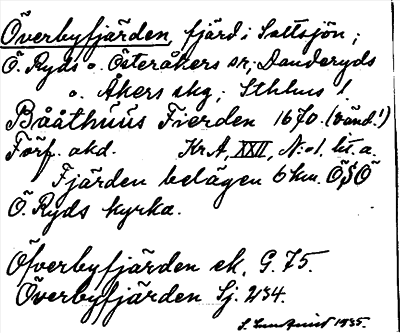 Överbyfjärden, fjärd i Saltsjön;
Ö. Ryds o. Österåkers sn; Danderyds
o. Åkers skg; Sthlms l.
Bååthuus Fierden 1670. (vänd!)
Förf. okd. Kr A, XXII, N:o 1. lit. a.
Fjärden belägen 6 km. ÖSÖ
Ö. Ryds kyrka.
Öfverbyfjärden ek. G. 75.
Överbyfjärden Sj. 234.
1935.